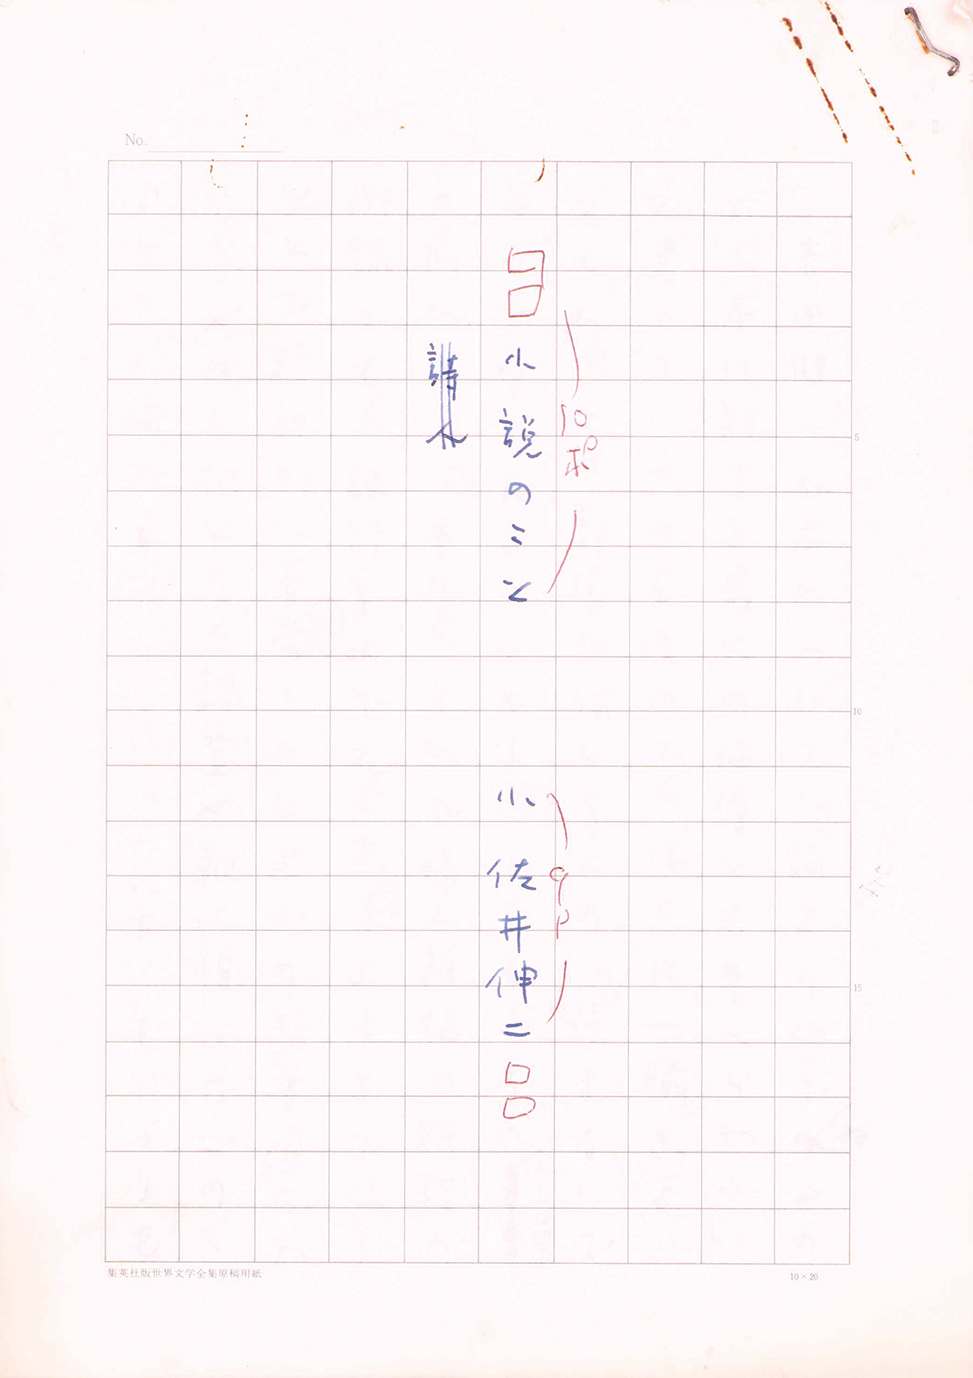 No.
10ポ
小説のこと
9P
小佐井伸二
5
10
15
集英社版世界文学全集原稿用紙
10×20